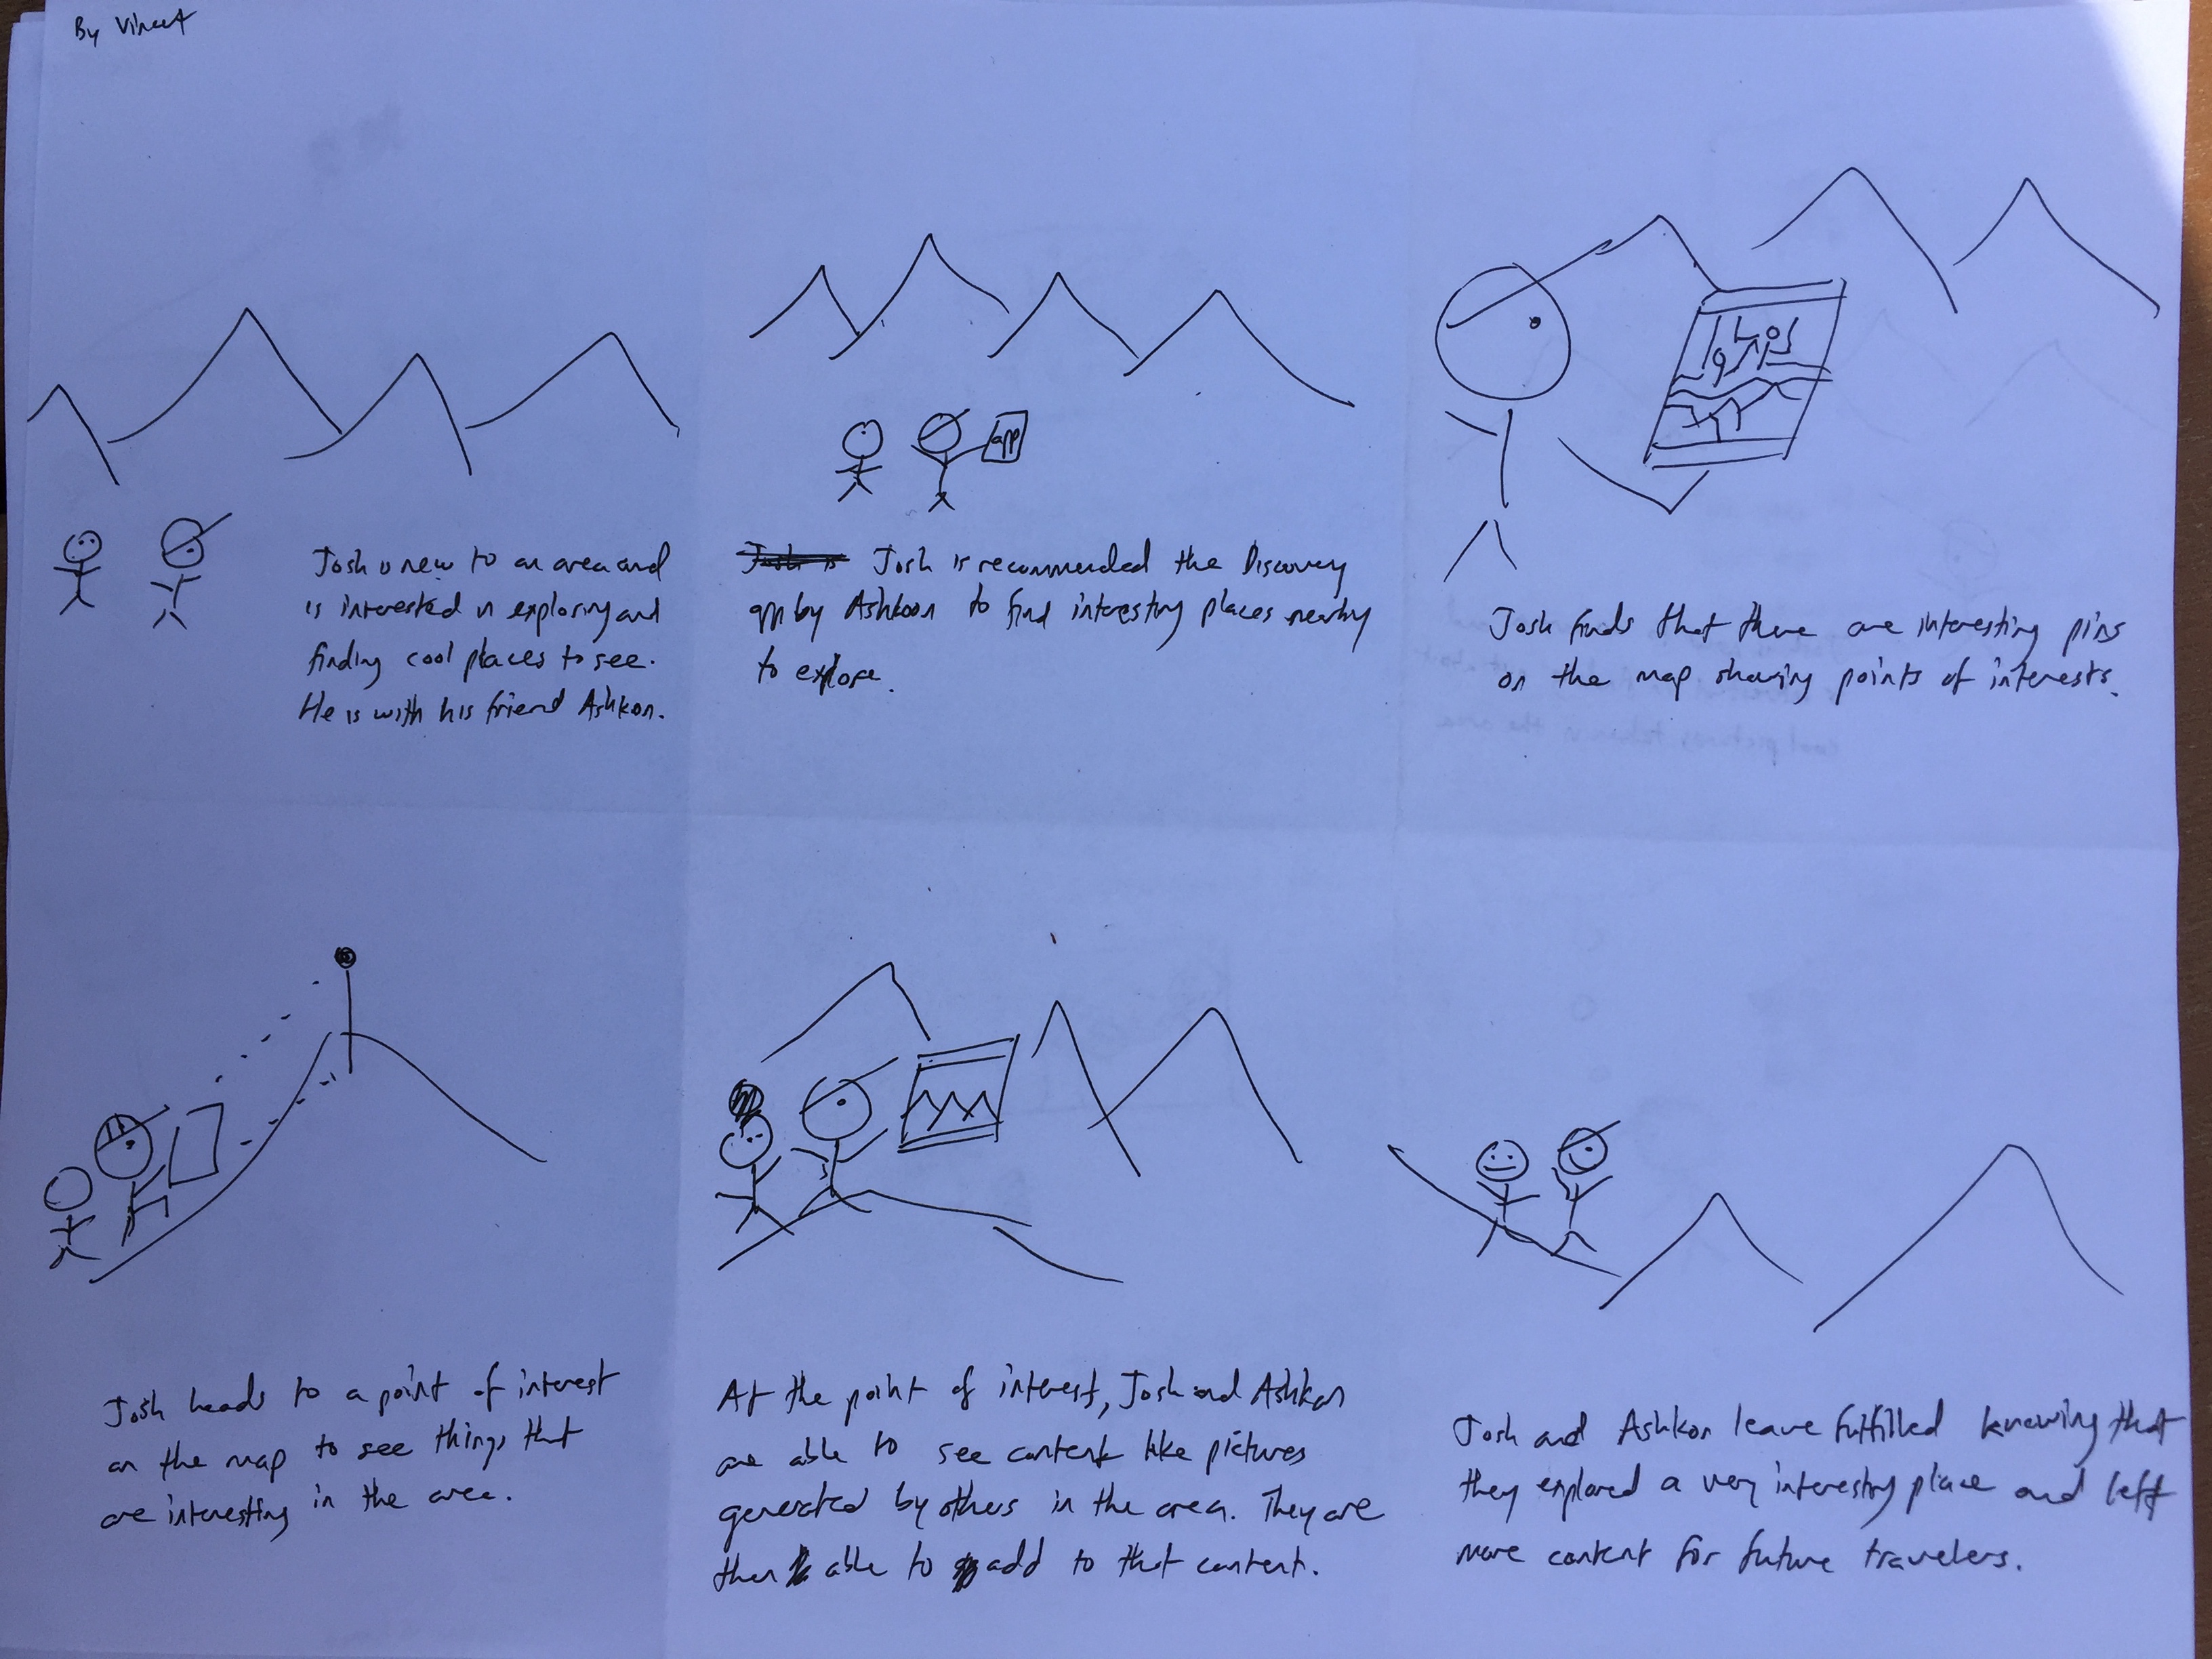 By Vineet
Josh is new to an area and
is interested in exploring and
finding cool places to see.
He is with his friend Ashkon.
app
Josh is Josh is recommended the Discovery
app by Ashkoon to find interesting places nearby
to explore.
Josh finds that there are interesting pins
on the map sharing points of interests.
Josh heads to a point of interest
on the map to see things that
are interesting in the area.
At the point of interest, Josh and Ashkon
are able to see content like pictures
generated by others in the area. They are
then able to add to that content.
Josh and Ashkon leave fulfilled knowing that
they explored a very interesting place and left
more content for future travelers.